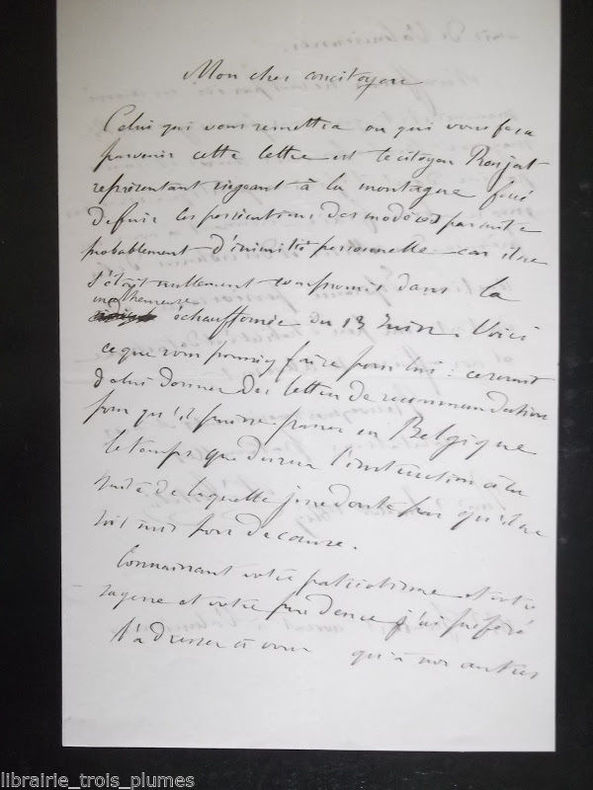 Mon cher concitoyen
Celui qui vous remettra ou qui vous fera
parvenir cette lettre est le citoyen Ronjat
représentant siegeant à la montagne forcé
de fuir les persécutions des modérés par suite
probablement d'inimitié personnelle car il ne
s'était nullement compromis dans la
malheureuse
échauffourée du 13 Juin. Voici
ce que vous pourriez faire pour lui : ce serait
de lui donner des lettres de recommandation
pour qu'il puisse passer en Belgique
le temps que durera l'instruction à la
suite de laquelle je ne doute pas qu'il ne
soit mis hors de cause.
Connaissant votre patriotisme et votre
sagesse et votre prudence j'ai préféré
l'adresser à vous qu'à nos autres
librairie_trois_plumes